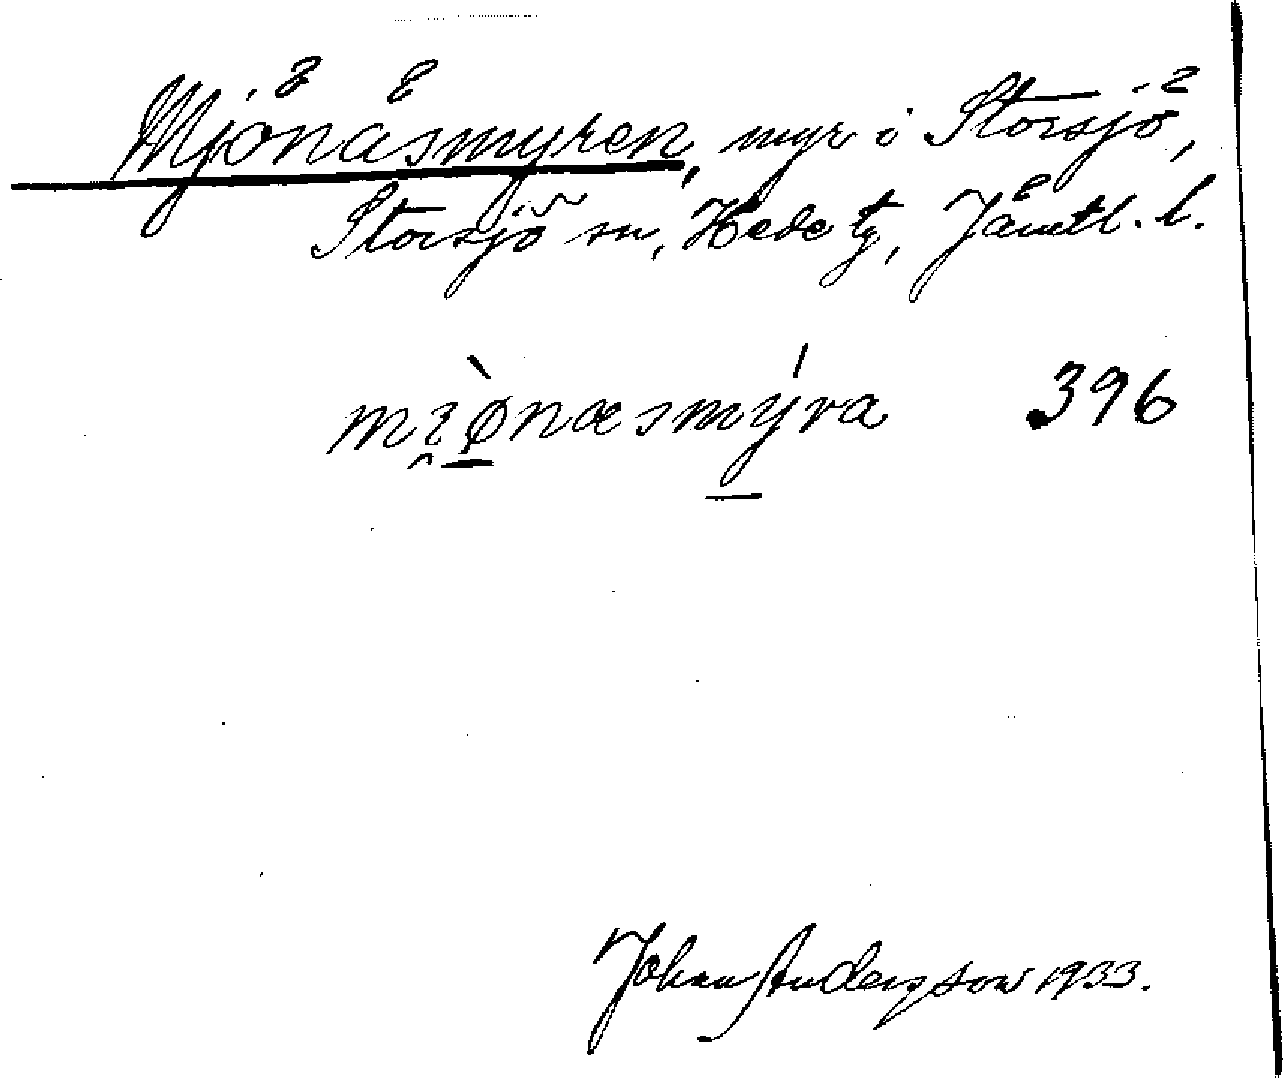 Mjönäsmyren, myr i Storsjö,
Storsjö sn, Hede tg, Jämtl. l.
mi̯ø̀næsmýra 396
Johan Andersson 1933.